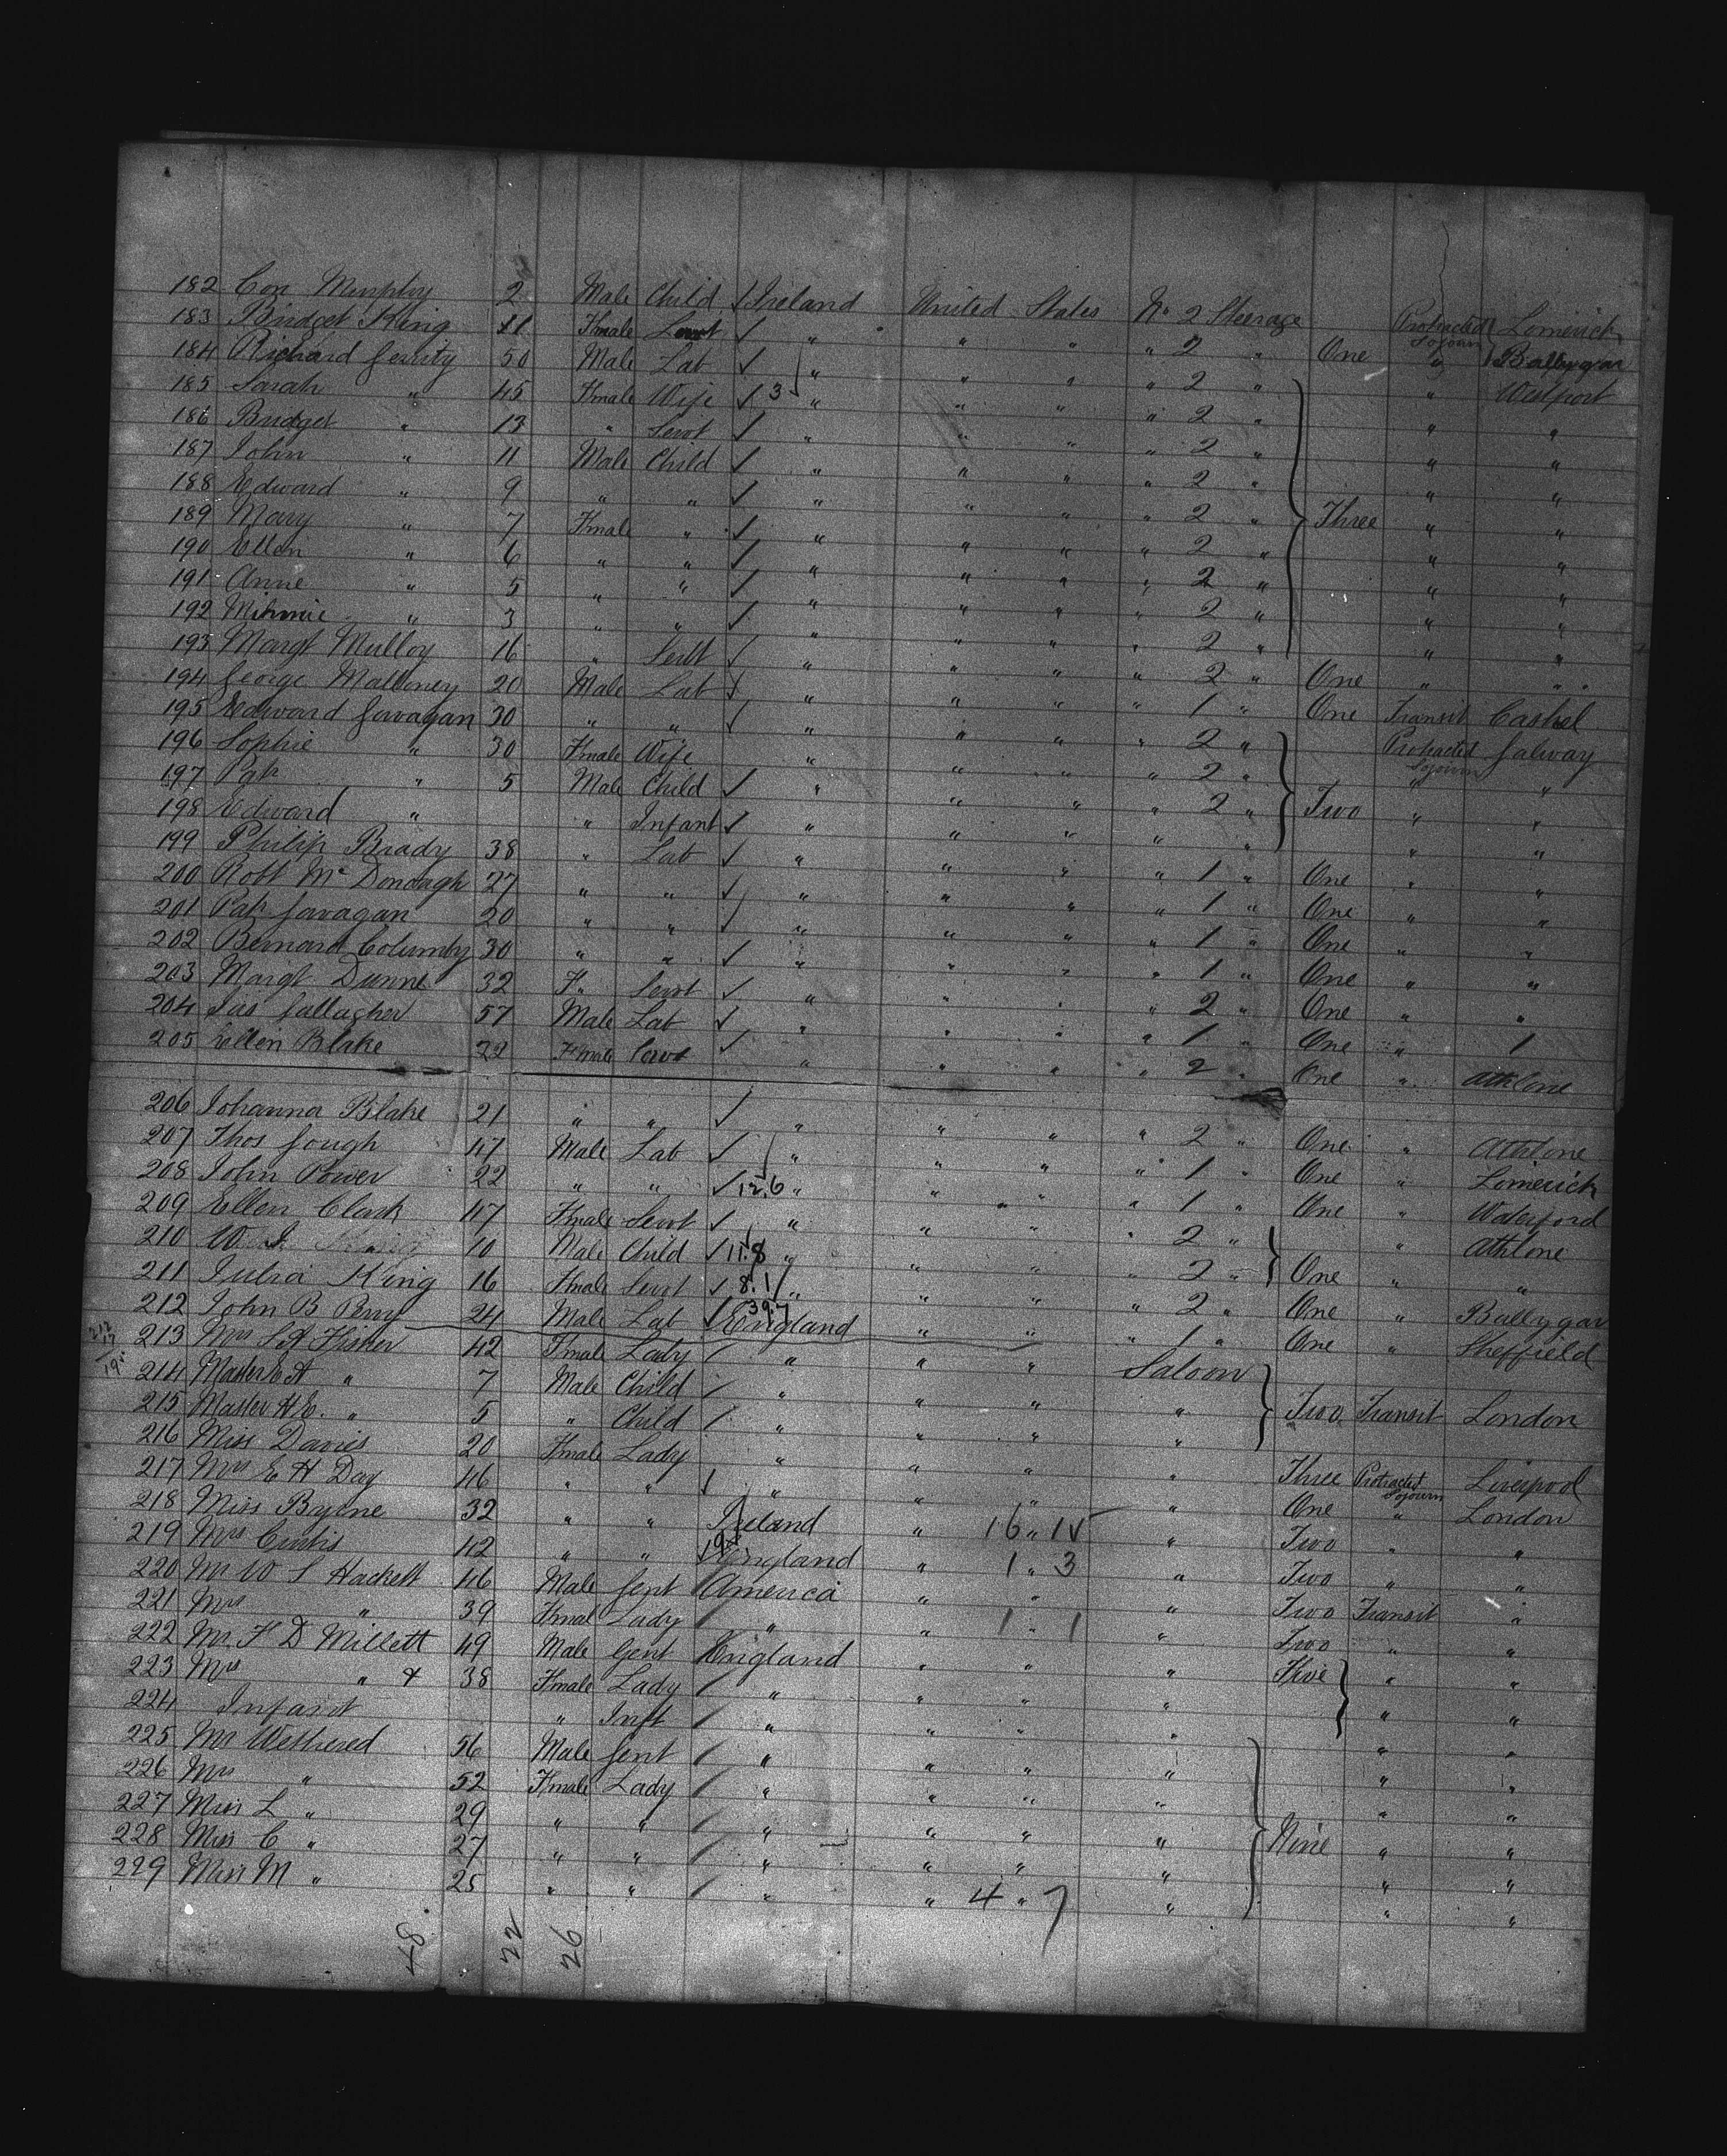 182 Con Murphy 2 Male Child ✓ Ireland United States No 2 Steerage Protracted Sojourn Lomerick
183 Bridget King 11 Fmale Servt ✓ " " " " 2 " One " Ballygar
184 Richard Gerrity 50 Male Lab ✓ " " " " 2 " " Westport
185 Sarah " 45 Fmale Wife ✓ 3 " " " " 2 " " "
186 Bridget " 13 " Servt ✓ " " " " 2 " " "
187 John " 11 Male Child ✓ " " " " 2 " " "
188 Edward " 9 " " ✓ " " " " 2 " Three " "
189 Mary " 7 Fmale " ✓ " " " " 2 " " "
190 Ellen " 6 " " ✓ " " " " 2 " " "
191 Anne " 5 " " ✓ " " " " 2 " " "
192 Minnie " 3 " " ✓ " " " " 2 " " "
193 Margt Mulloy 16 " Servt ✓ " " " " 2 " One " "
194 George Malloney 20 Male Lab ✓ " " " " 1 " One Transit Cashel
195 Edward Gavagan 30 " " ✓ " " " " 2 " Protracted Sojourn Galway
196 Sophie " 30 Fmale Wife " " " " 2 " " "
197 Pat " 5 Male Child ✓ " " " " 2 " Two " "
198 Edward " " Infant ✓ " " " " " " "
199 Philip Brady 38 " Lab ✓ " " " " 1 " One " "
200 Robt McDonoagh 27 " " ✓ " " " " 1 " One " "
201 Pat Gavagan 20 " " ✓ " " " " 1 " One " "
202 Bernard Columby 30 " " ✓ " " " " 1 " One " "
203 Margt Dunne 32 F. Servt ✓ " " " " 2 " One " "
204 Jas Gallagher 57 Male Lab ✓ " " " " 1 " One " 1
205 Ellen Blake 22 Fmale Servt ✓ " " " " 2 " One " Athlone
206 Johanna Blake 21 " " ✓ " " " " 2 " One " Athlone
207 Thos Gough 47 Male Lab ✓ " " " " 1 " One " Lomerick
208 John Power 22 " " ✓ 12.6 " " " " 1 " One " Waterford
209 Ellen Clark 47 Fmale Servt ✓ " " " " 2 " " Athlone
210 W. J. 10 Male Child ✓ 11.8 " " " " 2 " One " "
211 Julia King 16 Fmale Servt ✓ 8.1 " " " " 2 " One " Ballygar
212 John B Perry 24 Male Lab ✓ 39.7 England " " " 1 " One " Sheffield
213 Mrs S A Fisher 42 Fmale Lady " " " Saloon
214 Master E A " 7 Male Child " " " " Two Transit London
215 Master H E. " 5 " Child " " " "
216 Miss Davies 20 Fmale Lady " " " " Three Protracted Sojourn Liverpool
217 Mrs E H Day 46 " " " " " " One " London
218 Miss Byrne 32 " " Ireland " 16 " 15 " Two " "
219 Mrs Curtis 42 " " England " 1 " 3 " Two " "
220 Mr W S Hackett 46 Male Gent America " " " Two Transit "
221 Mrs " 39 Fmal Lady " " 1 " 1 " Two " "
222 Mr F D Millett 49 Male Gent England " " " Five " "
223 Mrs " & 38 Fmale Lady " " " " " "
224 Infant " Inft " " " " " "
225 Mr Wethered 56 Male Gent " " " " " "
226 Mrs " 52 Fmale Lady " " " " " "
227 Miss L " 29 " " " " " " Nine " "
228 Miss C " 27 " " " " " " " "
229 Miss M " 25 " " " " 4 " 7 " " "
48 22 26